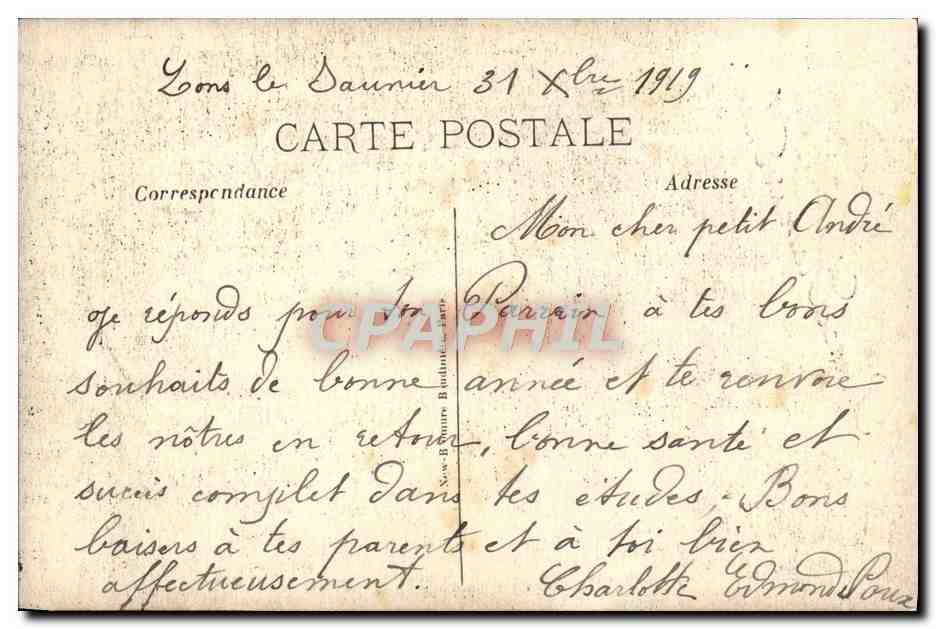 Lons le Saunier 31 Xbre 1919
CARTE POSTALE
Correspondance
Adresse
Mon cher petit André
Je réponds pour ton Parrain à tes bons
souhaits de bonne année et te renvoie
les nôtres en retour, bonne santé et
succès complet dans tes études, Bons
baisers à tes parents et à toi bien
affectueusement. Charlotte Edmond Poux
CPAPHIL
Paris